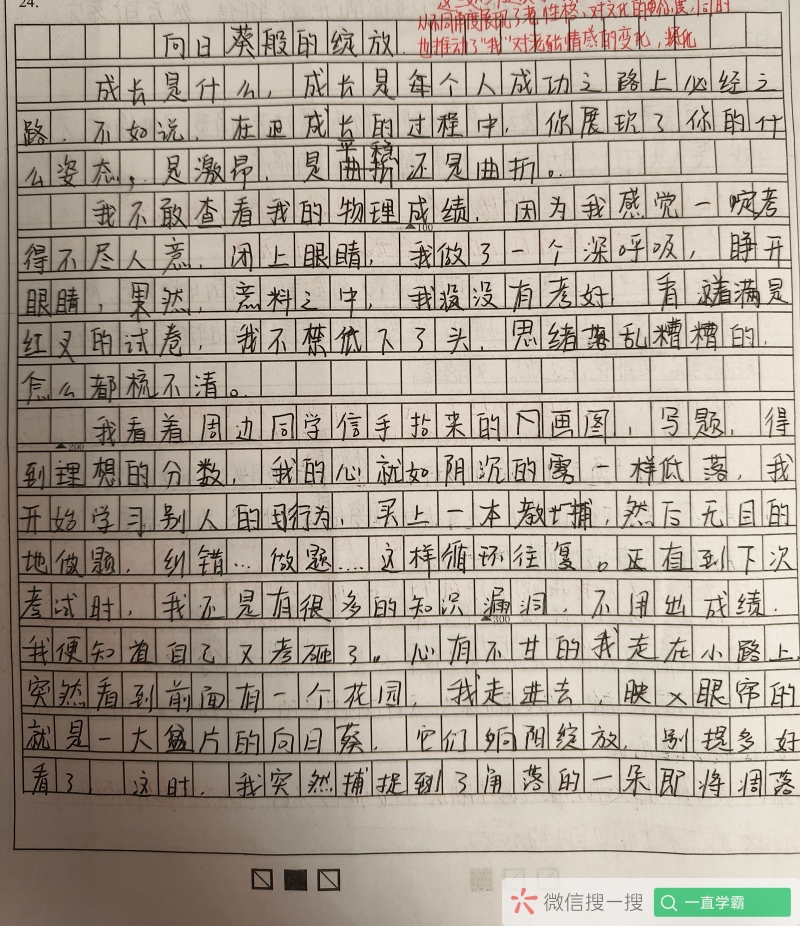 24.
从不同角度展现了
也推动了“我”对老 情感的变化，深化
向日葵般的绽放
成长是什么，成长是每个人成功之路上必经之
路．不如说，在迈成长的过程中，你展现了你的什
平稳
么姿态，是激昂，是曲折还是曲折。
我不敢查看我的物理成绩．因为我感觉一啶考
▲100
得不尽人意．闭上眼睛，我做了一个深呼吸，睁开
眼睛，果然，意料之中，我没没有考好．看这着满是
红叉的试卷，我不禁低下了头．思绪落乱糟糟的．
怎么都梳不清。
我看着周边同学信手拾来的 画图，写题，得
▲200
到理想的分数，我的心就如阴沉的雾一样低落，我
开始学习别人的 行为，买上一本教辅，然后无目的
地做题．纠错…做题……这样循环往复。正直到下次
考试时，我还是有很多的知识漏洞，不用出成绩．
▲300
我便知道自己又考砸了。心有不甘的我走在小路上．
突然看到前面有一个花园，我走进去，映入眼帘的
就是一大盆片的向日葵．它们 向阳绽放．别提多好
看了．这时．我突然捕捉到了角落的一朵即将凋落
微信搜一搜
一直学霸